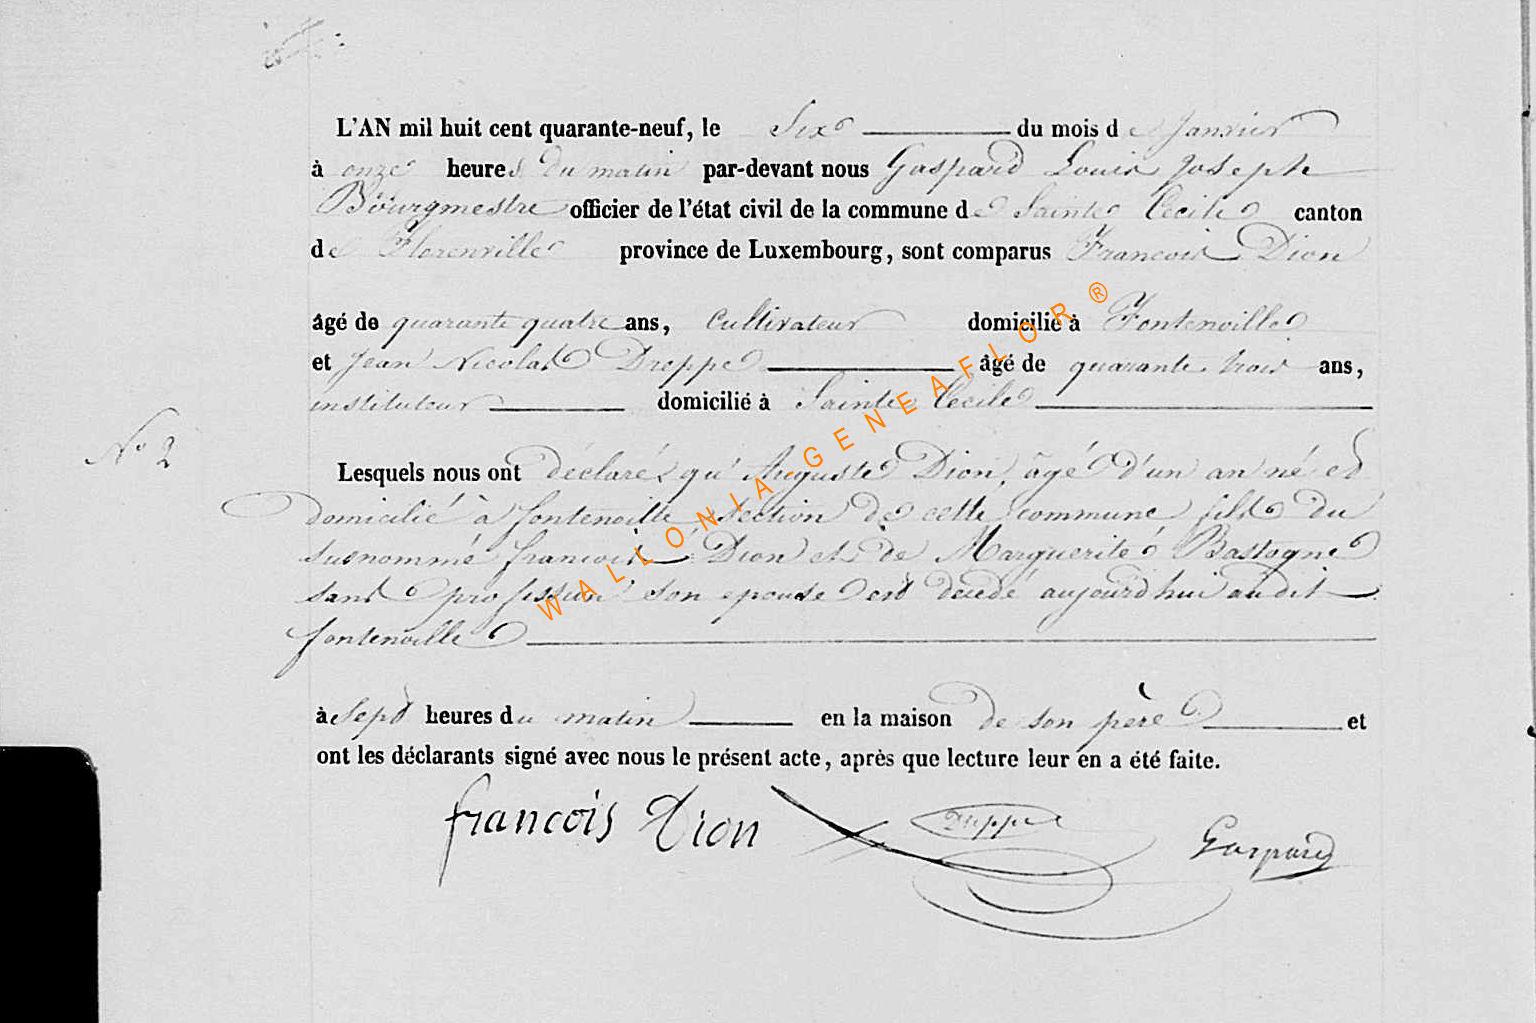 L'AN mil huit cent quarante-neuf, le Six du mois de Janvier
à onze heures du matin par-devant nous Gaspard Louis Joseph
Bourgmestre officier de l'état civil de la commune de Sainte Cecile canton
de Florenville province de Luxembourg, sont comparus Francois Dion
âgé de quarante quatre ans, Cultivateur domicilié à Fontenoille
et Jean Nicolas Dreppe âgé de quarante trois ans,
instituteur domicilié à Sainte Cecile
N° 2
Lesquels nous ont déclaré qu' Auguste Dion, âgé d'un an né et
domicilié à fontenoille section de cette commune fils du
susnommé francois Dion et de Marguerite Bastogne
sans profession son epouse est décédé aujourd'hui audit
fontenoille
à Sept heures du matin en la maison de son père et
ont les déclarants signé avec nous le présent acte, après que lecture leur en a été faite.
francois Dion Dreppe Gaspard
WALLONIA GENEAFLOR ®